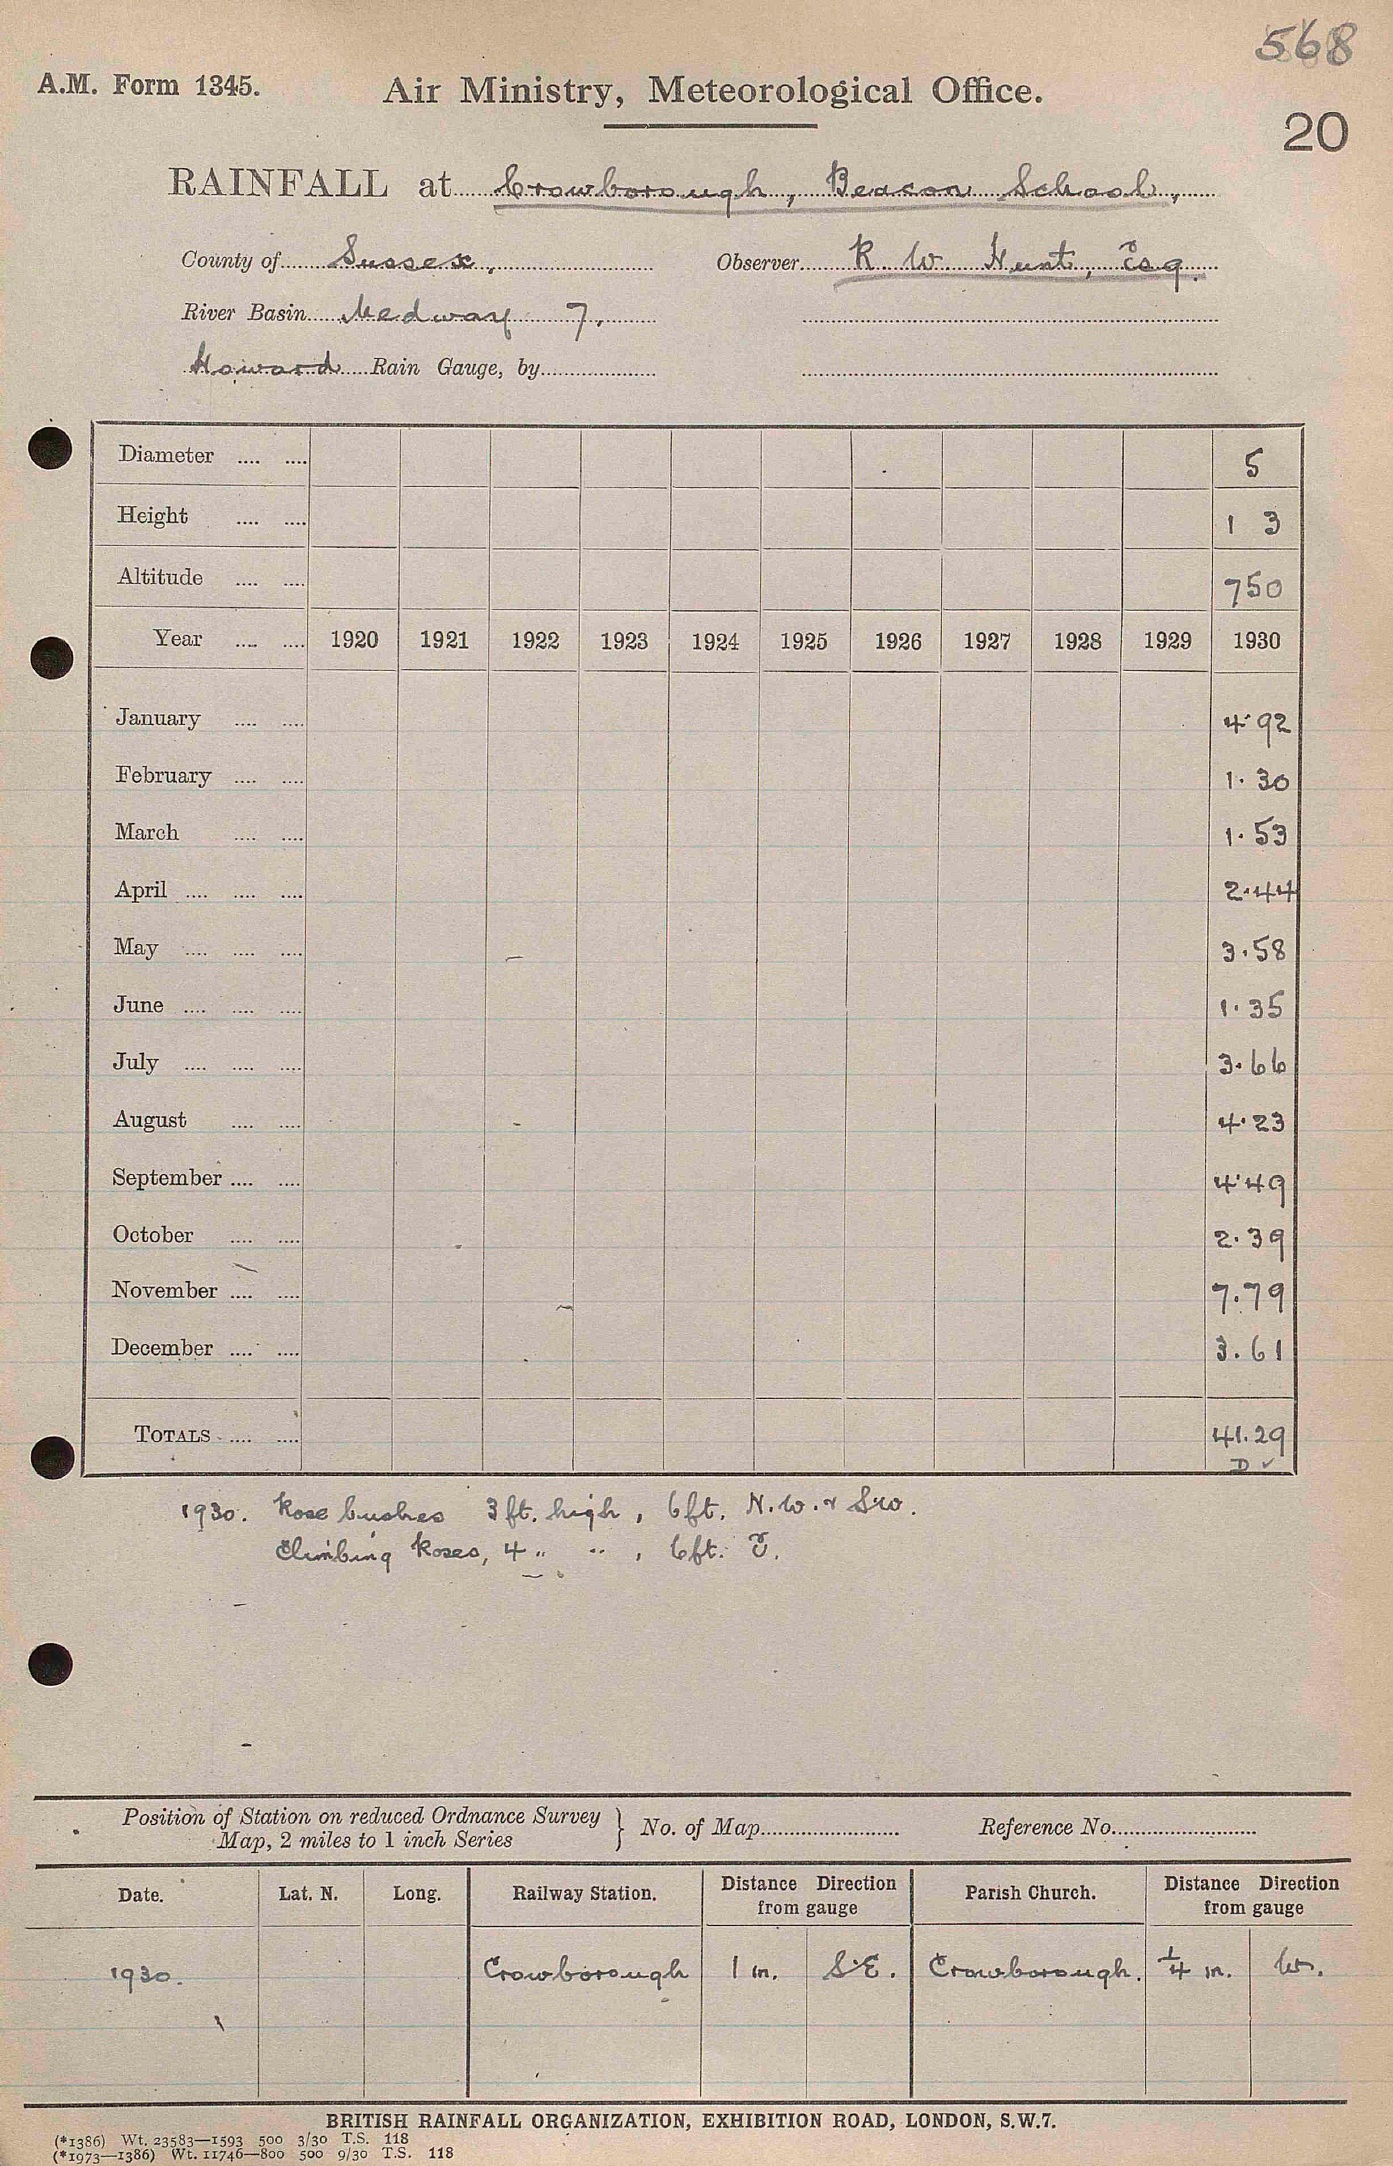 568
A.M. Form 1345. Air Ministry, Meteorological Office.
20
RAINFALL at Crowborough, Beacon School,
County of Sussex, Observer R. W. Hunt, Esq.
River Basin Medway 7,
Howard Rain Gauge, by
Diameter 5
Height 1 3
Altitude 750
Year 1920 1921 1922 1923 1924 1925 1926 1927 1928 1929 1930
January 4.92
February 1.30
March 1.53
April 2.44
May 3.58
June 1.35
July 3.66
August 4.23
September 4.49
October 2.39
November 7.79
December 3.61
TOTALS 41.29
D ✓
1930. Rose bushes 3 ft. high, 6ft. N.W. & SW.
Climbing Roses, 4 " " , 6ft. E.
Position of Station on reduced Ordnance Survey
Map, 2 miles to 1 inch Series } No. of Map Reference No.
Date. Lat. N. Long. Railway Station. Distance Direction from gauge Parish Church. Distance Direction from gauge
1930. Crowborough 1 m. S.E. Crowborough. 1/4 m. W.
BRITISH RAINFALL ORGANIZATION, EXHIBITION ROAD, LONDON, S.W.7.
(*1386) Wt. 23583—1593 500 3/30 T.S. 118
(*1973—1386) Wt. 11746—800 500 9/30 T.S. 118